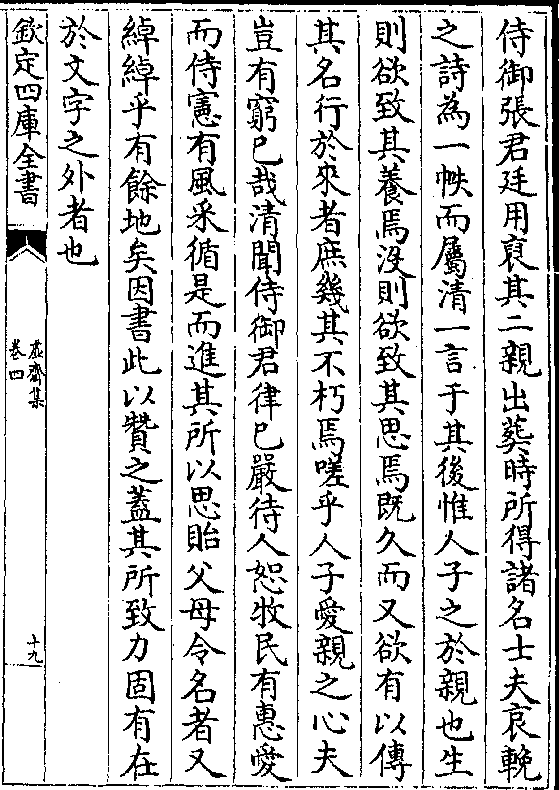 侍御張君廷用裒其二親出葬時所得諸名士夫哀輓
之詩為一帙而屬清一言于其後惟人子之於親也生
則欲致其養焉沒則欲致其思焉既久而又欲有以傳
其名行於來者庶幾其不朽焉嗟乎人子愛親之心夫
豈有窮已哉清聞侍御君律已嚴待人恕牧民有惠愛
而侍憲有風采循是而進其所以思貽父母令名者又
綽綽乎有餘地矣因書此以贊之蓋其所致力固有在
於文字之外者也
欽定四庫全書
虛齋集
卷四
十九